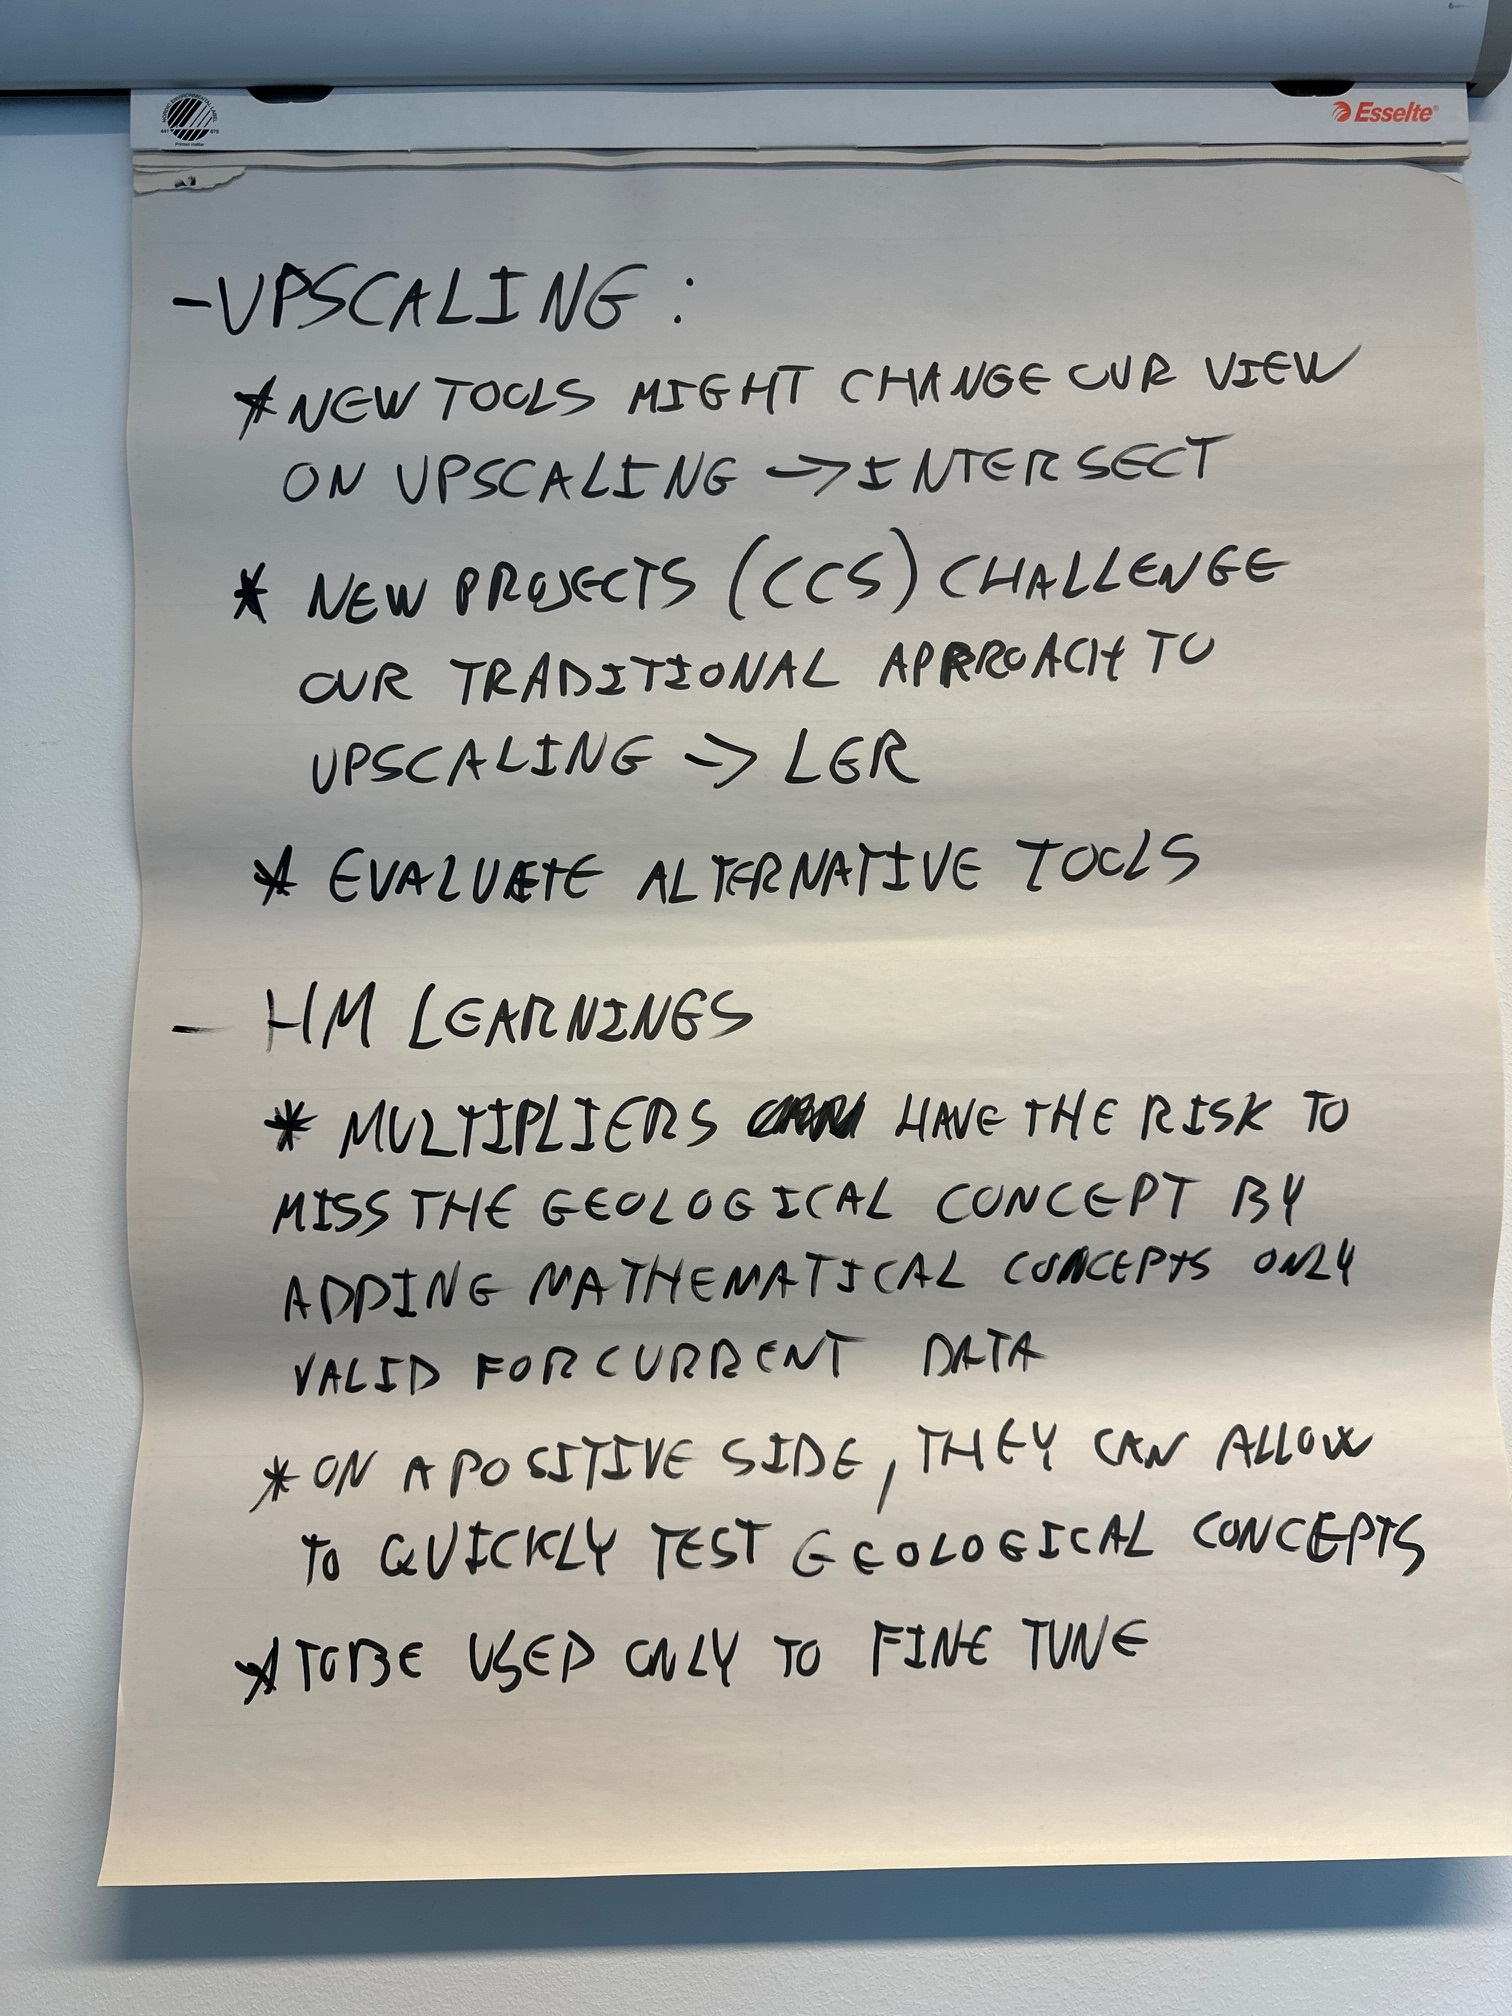 NORDIC ENVIRONMENTAL LABEL
441 675
Printed matter
Esselte
- UPSCALING :
* NEW TOOLS MIGHT CHANGE OUR VIEW
ON UPSCALING -> INTERSECT
* NEW PROJECTS (CCS) CHALLENGE
OUR TRADITIONAL APPROACH TO
UPSCALING -> LGR
* EVALUATE ALTERNATIVE TOOLS
- HM LEARNINGS
* MULTIPLIERS HAVE THE RISK TO
MISS THE GEOLOGICAL CONCEPT BY
ADDING MATHEMATICAL CONCEPTS ONLY
VALID FOR CURRENT DATA
* ON A POSITIVE SIDE, THEY CAN ALLOW
TO QUICKLY TEST GEOLOGICAL CONCEPTS
* TO BE USED ONLY TO FINE TUNE